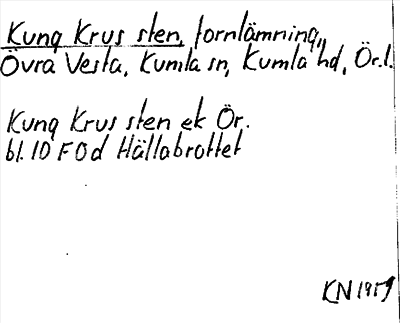 Kung Krus sten, fornlämning,
Övra Vesta, Kumla sn, Kumla hd, Ör.l.
Kung Krus sten ek Ör.
bl. 10 F 0 d Hällabrottet
KN 1959